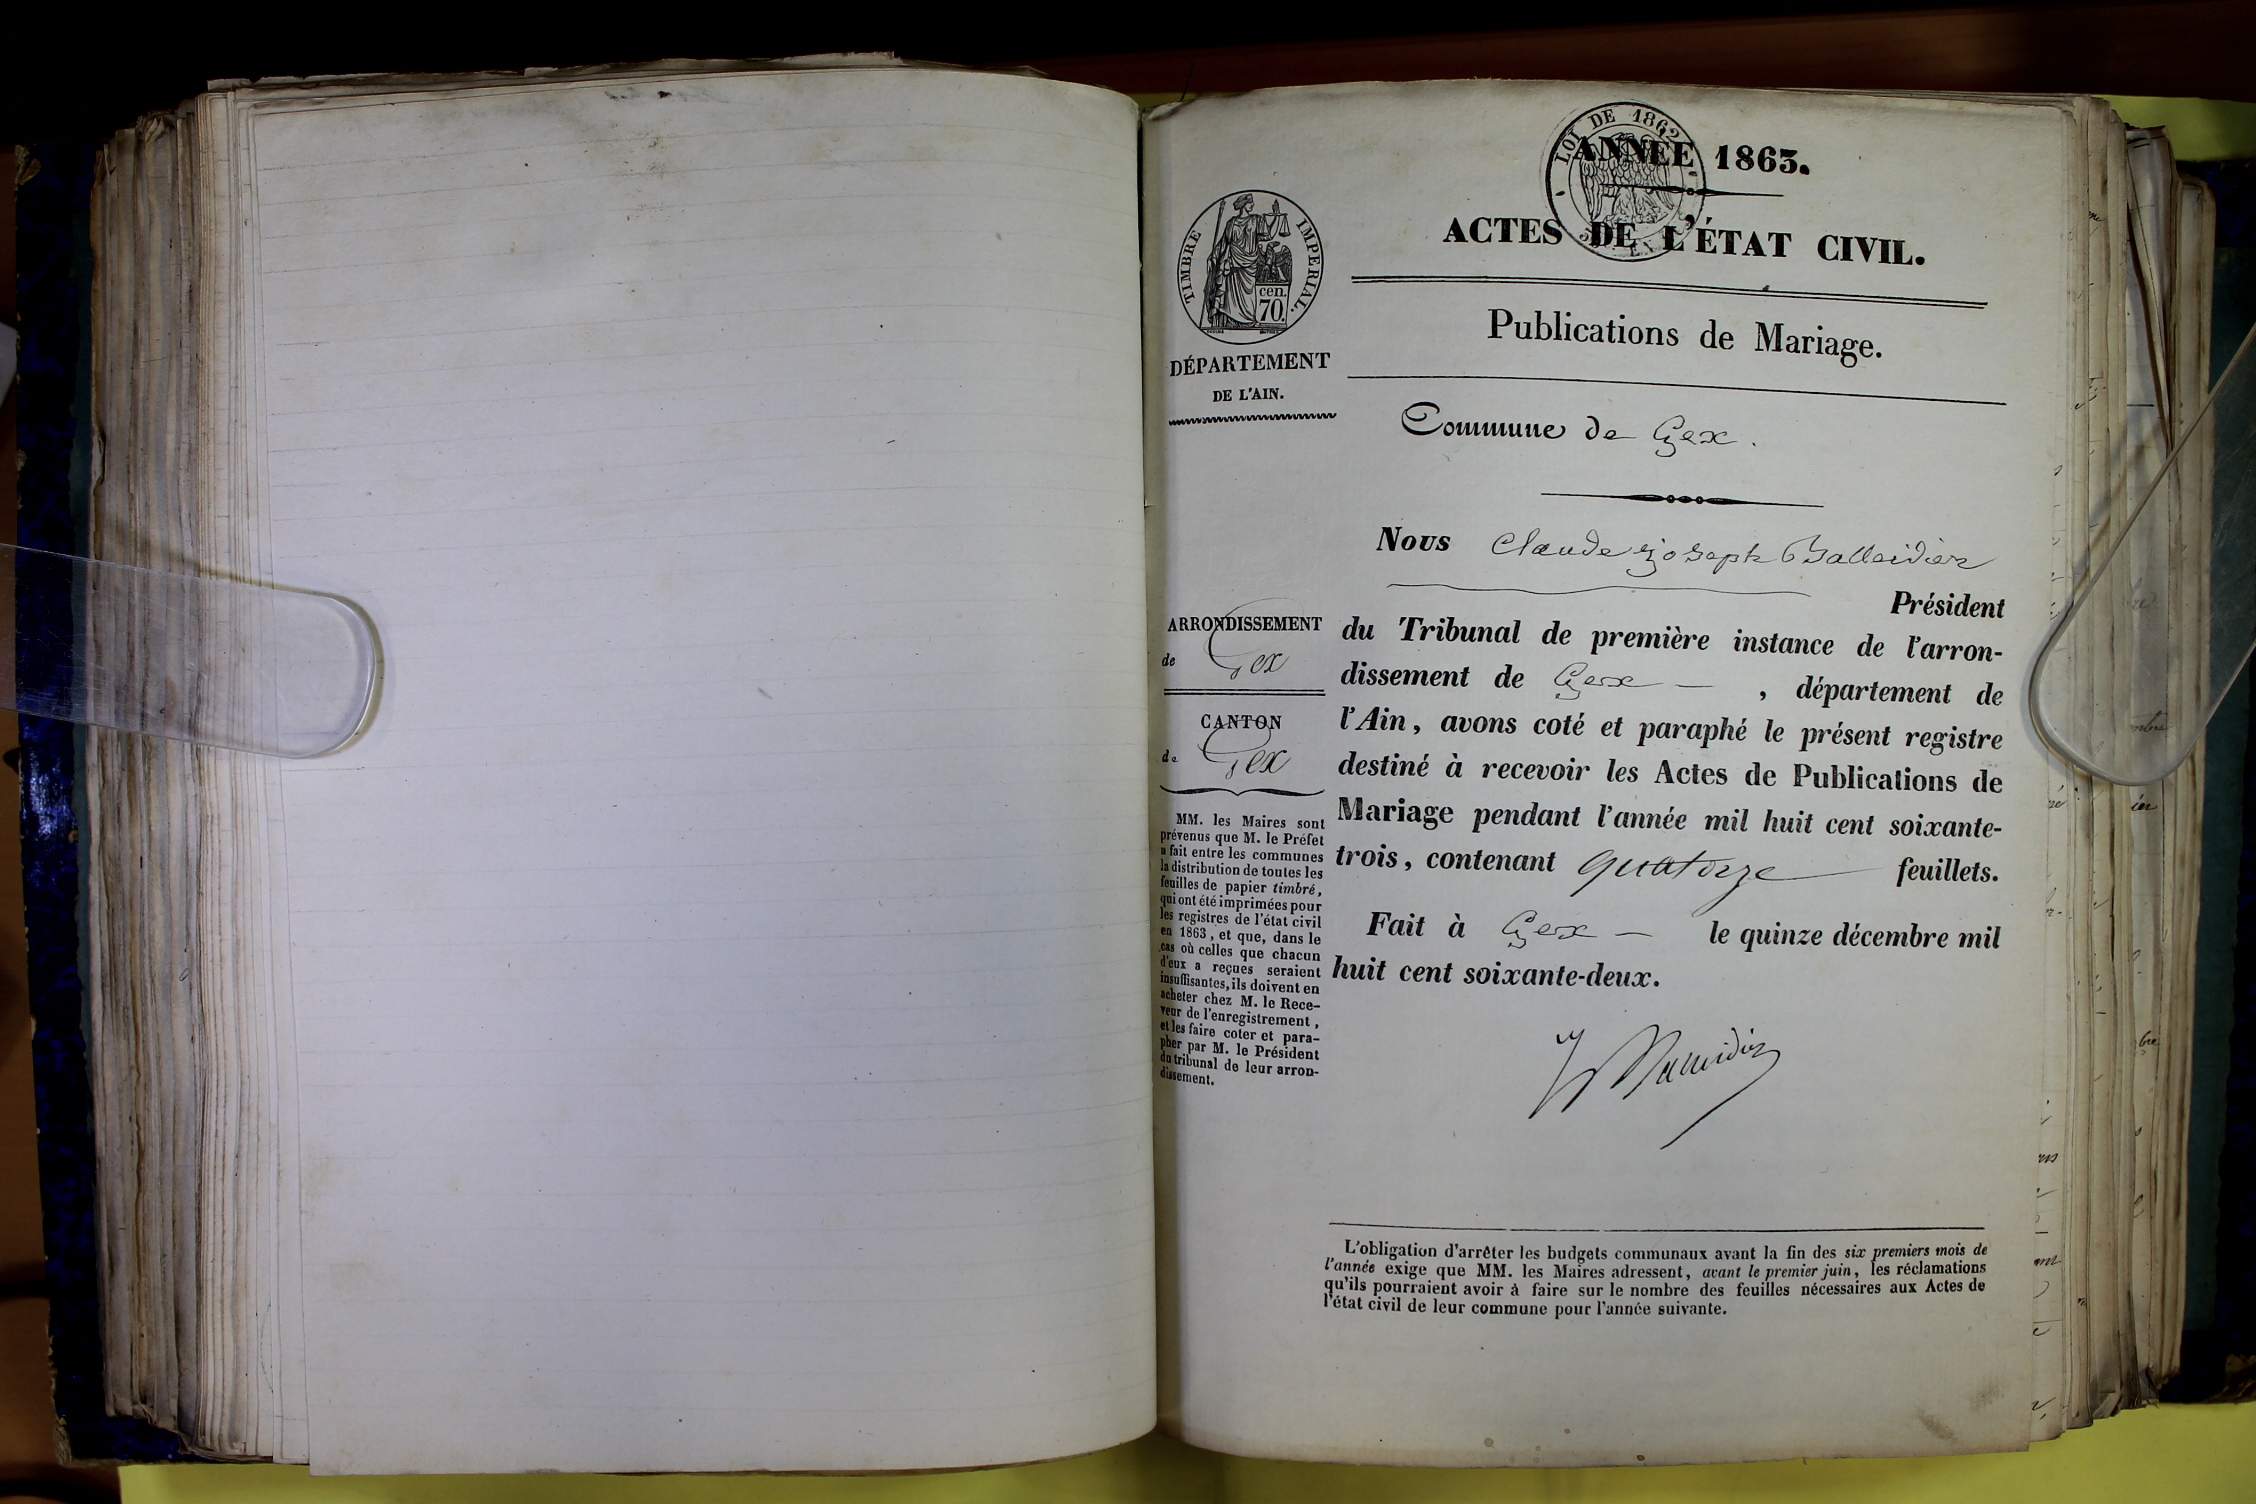 LOI DE 1862
ANNÉE 1863.
ACTES DE L'ÉTAT CIVIL.
Publications de Mariage.
Commune de Gex.
TIMBRE IMPERIAL.
cen.
70.
DÉPARTEMENT
DE L'AIN.
ARRONDISSEMENT
de Gex
CANTON
de Gex
MM. les Maires sont
prévenus que M. le Préfet
a fait entre les communes
la distribution de toutes les
feuilles de papier timbré,
qui ont été imprimées pour
les registres de l'état civil
en 1863, et que, dans le
cas où celles que chacun
d'eux a reçues seraient
insuffisantes, ils doivent en
acheter chez M. le Rece-
veur de l'enregistrement,
et les faire coter et para-
pher par M. le Président
du tribunal de leur arron-
dissement.
Nous Claude Joseph Balleidier
Président
du Tribunal de première instance de l'arron-
dissement de Gex — , département de
l'Ain, avons coté et paraphé le présent registre
destiné à recevoir les Actes de Publications de
Mariage pendant l'année mil huit cent soixante-
trois, contenant quatorze feuillets.
Fait à Gex — le quinze décembre mil
huit cent soixante-deux.
Balleidier
L'obligation d'arrêter les budgets communaux avant la fin des six premiers mois de
l'année exige que MM. les Maires adressent, avant le premier juin, les réclamations
qu'ils pourraient avoir à faire sur le nombre des feuilles nécessaires aux Actes de
l'état civil de leur commune pour l'année suivante.